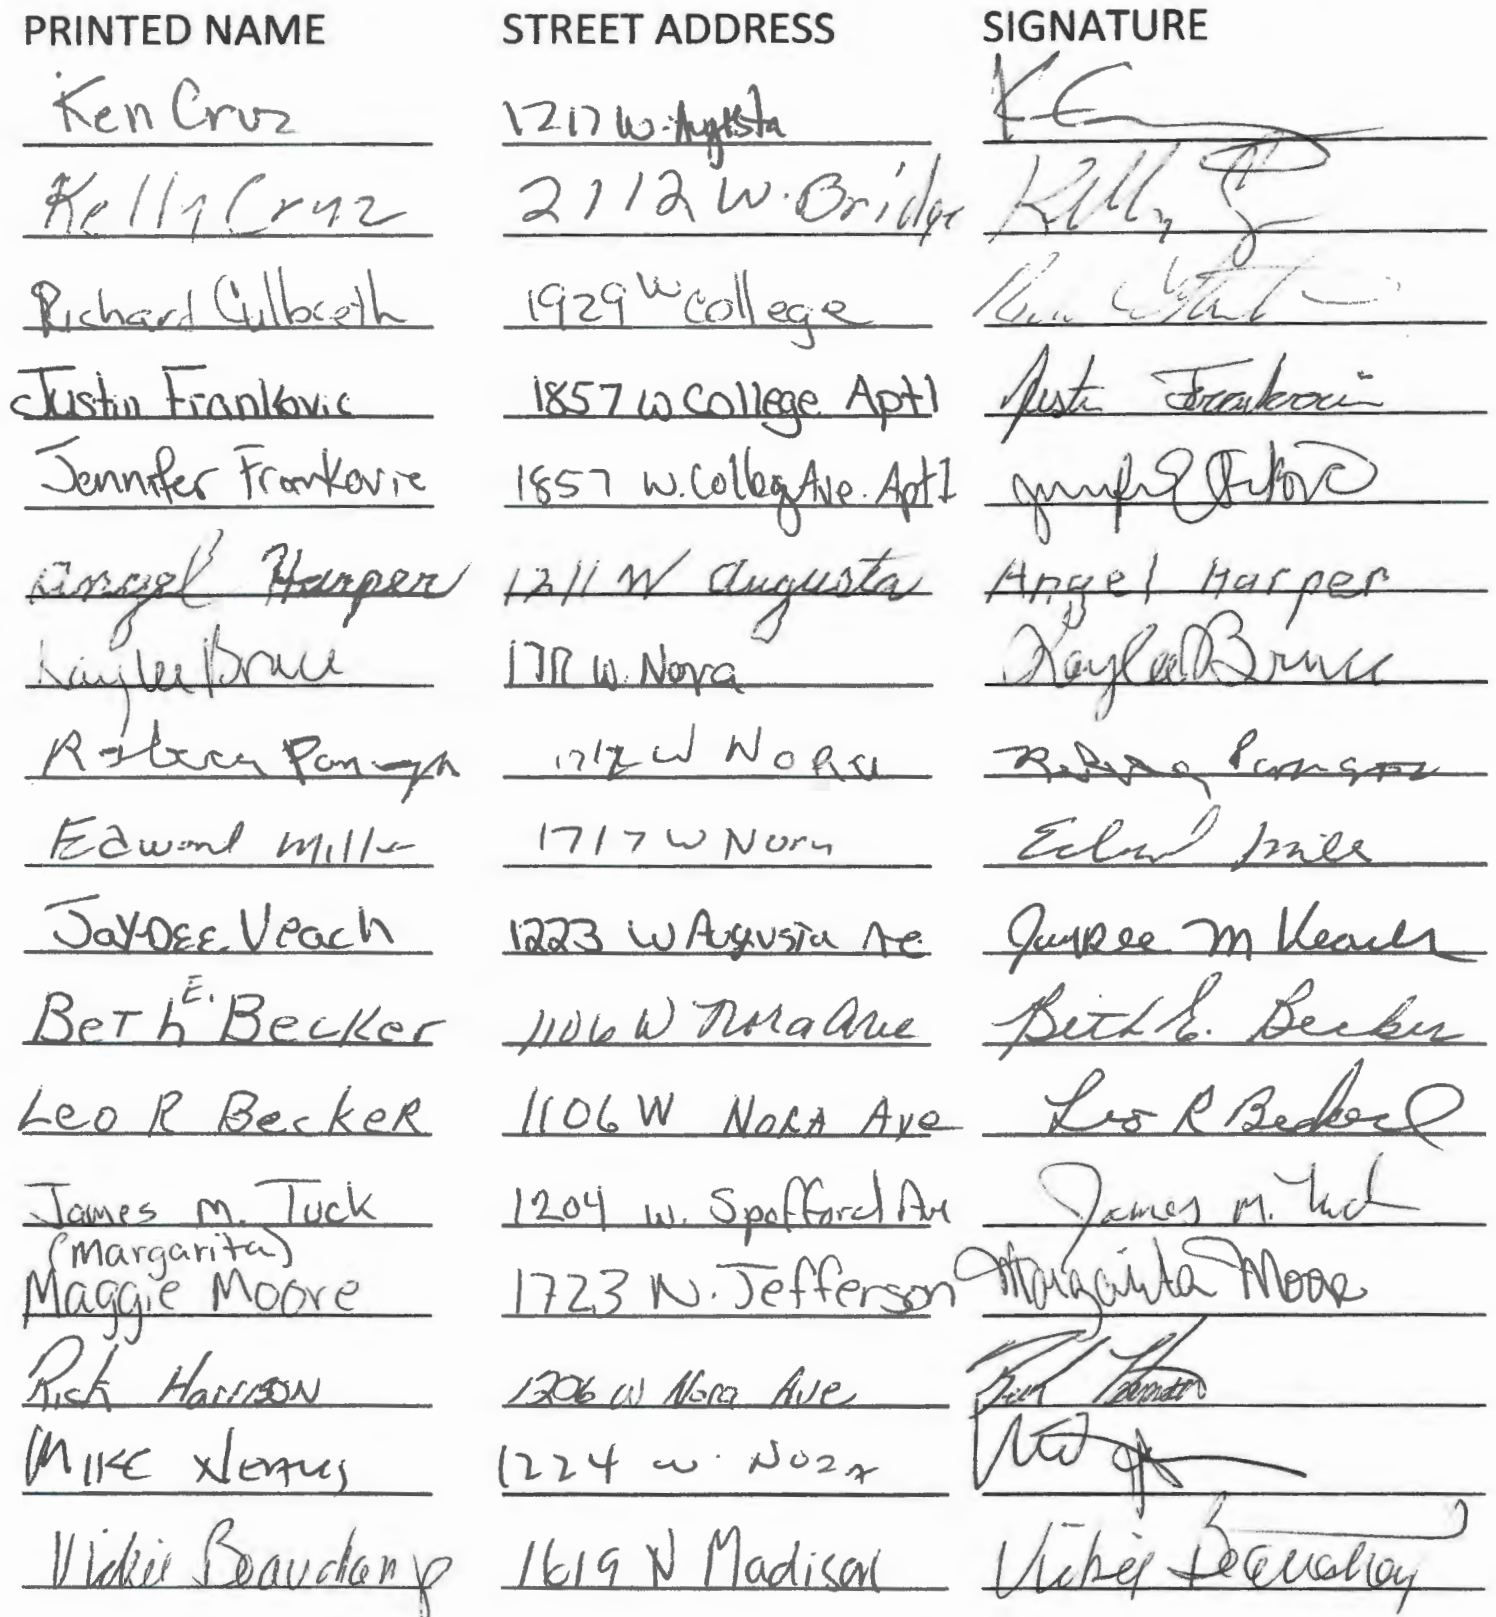 PRINTED NAME STREET ADDRESS SIGNATURE
Ken Cruz 1217 W. Augusta K C
Kelly Cruz 2112 W. Bridge Kelly
Richard Culbreth 1929 W College
Justin Frankovic 1857 W College Apt 1 Justin Frankovic
Jennifer Frankovic 1857 W. College Ave. Apt 1
Angel Harper 1211 W Augusta Angel Harper
Kaylee Bruce W. Nora Kaylee Bruce
Rebecca W Nora
Edward Miller 1717 W Nora Edward Mille
JayDee Veach 1223 W Augusta Ave JayDee M Veach
Beth E. Becker 1106 W Nora Ave Beth E. Becker
Leo R Becker 1106 W Nora Ave Leo R Becker
James M. Tuck 1204 W. Spofford Av James M. Tuck
(Margarita)
Maggie Moore 1723 N. Jefferson Margarita Moore
Rick Harrison 1206 W Nora Ave Rick Harrison
Mike 1224 W. Nora
Vickie Beauchamp 1619 N Madison Vickie Beauchamp